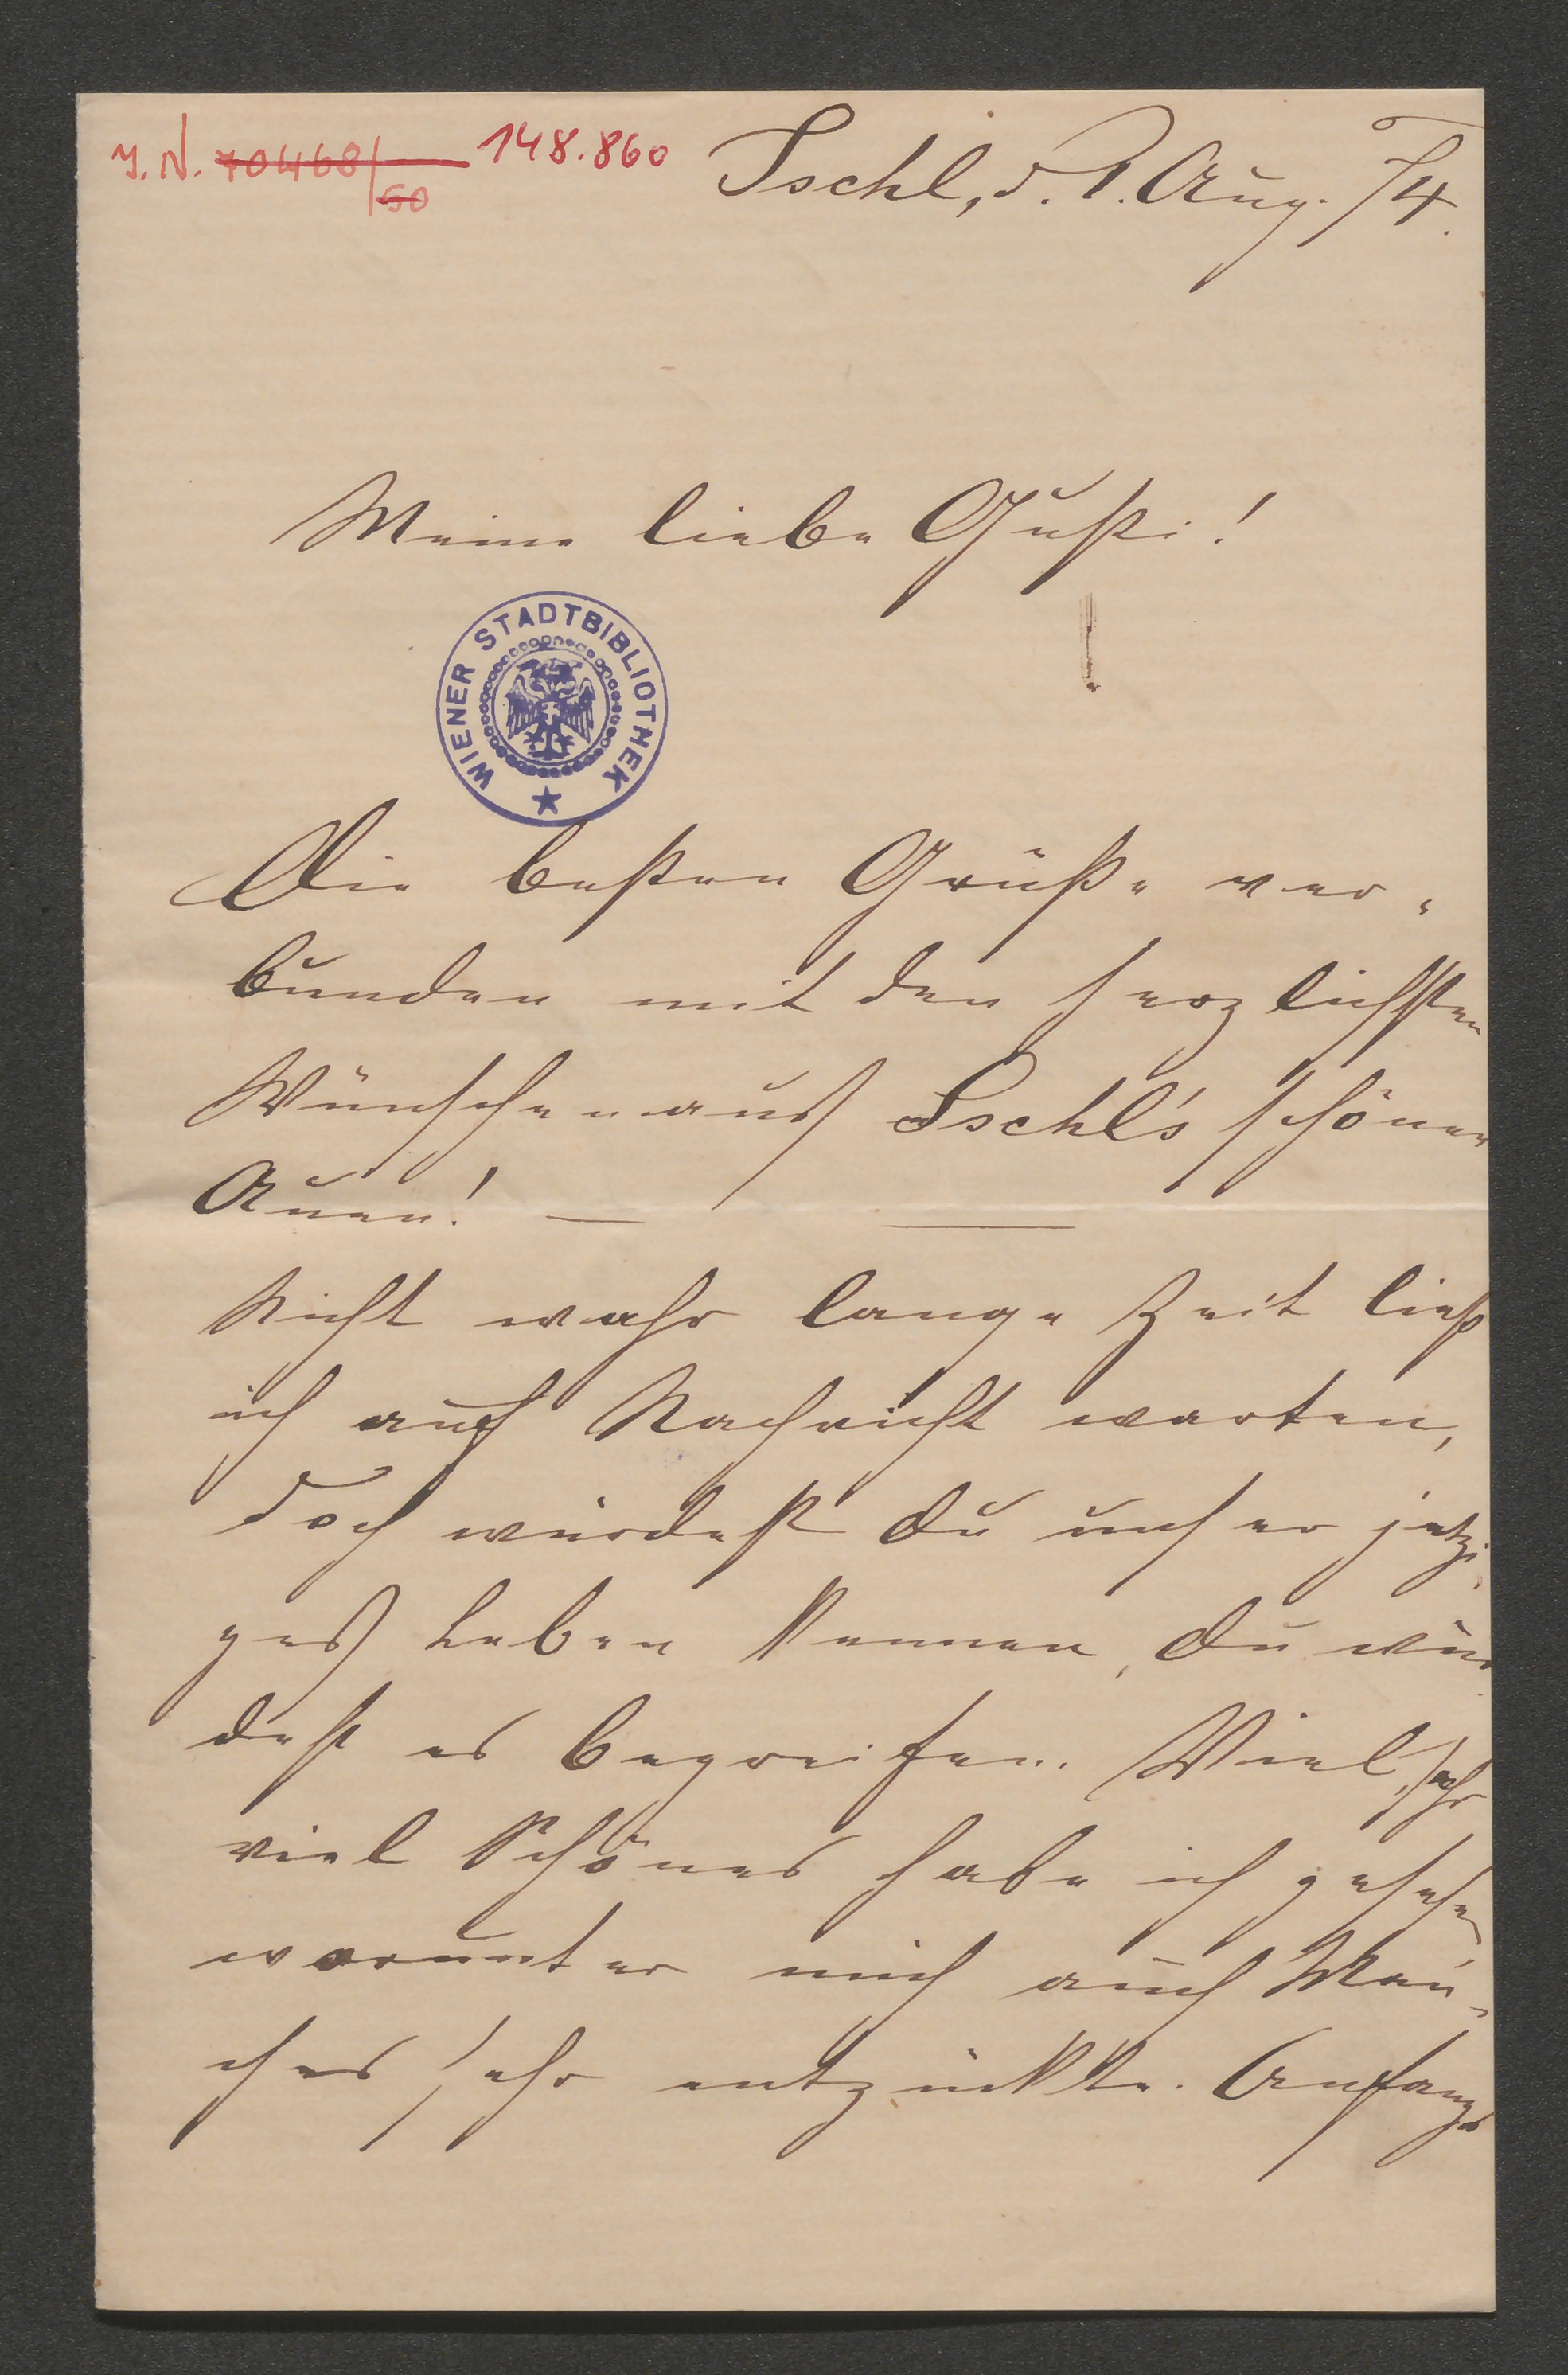 I. N. 70468/50 148.860
Ischl, d. 1. Aug. 74.
Meine liebe Gusti!
WIENER STADTBIBLIOTHEK
Die besten Grüße ver-
bunden mit den herzlichsten
Wünschen aus Ischl's schönen
Auen! —
Nicht wahr lange Zeit ließ
ich auf Nachricht warten,
doch würdest du unser jetzi-
ges Leben kennen, du wür-
dest es begreifen. Viel, sehr
viel Schönes habe ich gesehen
worunter mich auch Man-
ches sehr entzückte. Anfangs